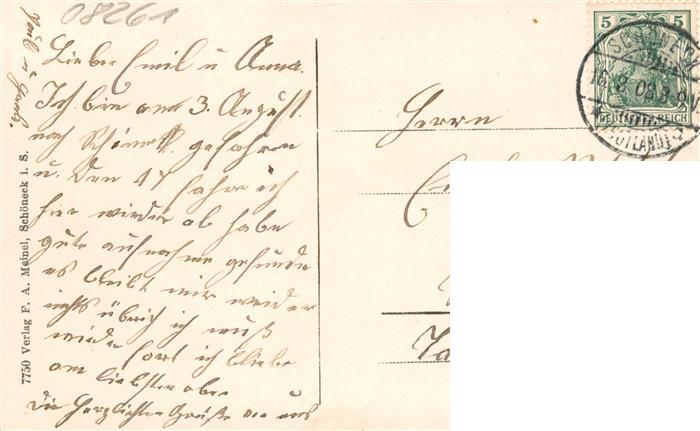 08261
Liebe Emil u Anna.
Ich bin am 3. August.
nach Schöneck gefahren
u. den 17 fahre ich
hier wieder ab habe
gute aufnahme gefunde
es bleibt mir weider
nichts übrich ich muß
wieder fort ich bliebe
am liebsten ober
die herzlichsten Grüße von uns
7750 Verlag F. A. Meinel, Schöneck i. S.
Herrn
5
DEUTSCHES REICH
16.8.09.8-9V